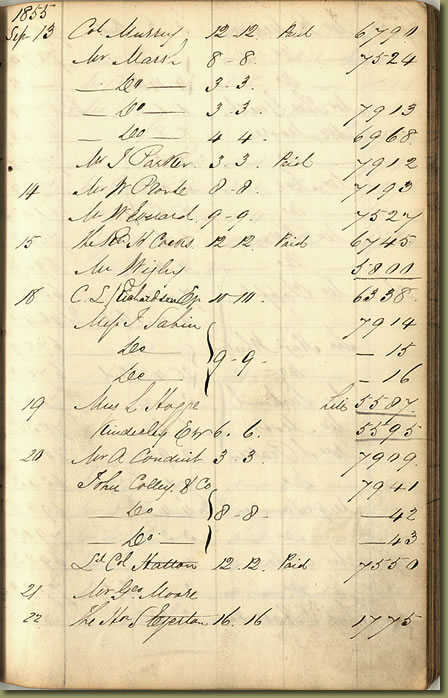 1855
Sep 13 Col Murray 12-12. Paid 6790
Mr Marsh 8-8. 7524
— Do — 3-3.
— Do — 3-3. 7913
— Do — 4-4. 6968
Mr J Parker 3.3. Paid 7912
14 Mr W 8-8. 7193
Mr W Everard 9-9. 7527
15 The H Cocks 12.12. Paid 6745
Mr Wigley 5800
18 C. L. Richardson Esq 10-10. 6338
Miss J Sabin 7914
Do 9-9. — 15
Do — 16
19 Miss L Hogge 5587
Kinderley Esq 6.6. 5595
20 Mr A Conduit 3.3. 7909
John Colley & Co 7941
— Do 8-8. — 42
— Do — — 43
Lt Col Hatton 12.12. Paid 7550
21 Mr Geo Moore
22 The Hon S Egerton 16.16 1775